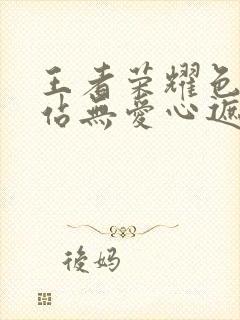 王者荣耀色
佔無愛心遮
後妈